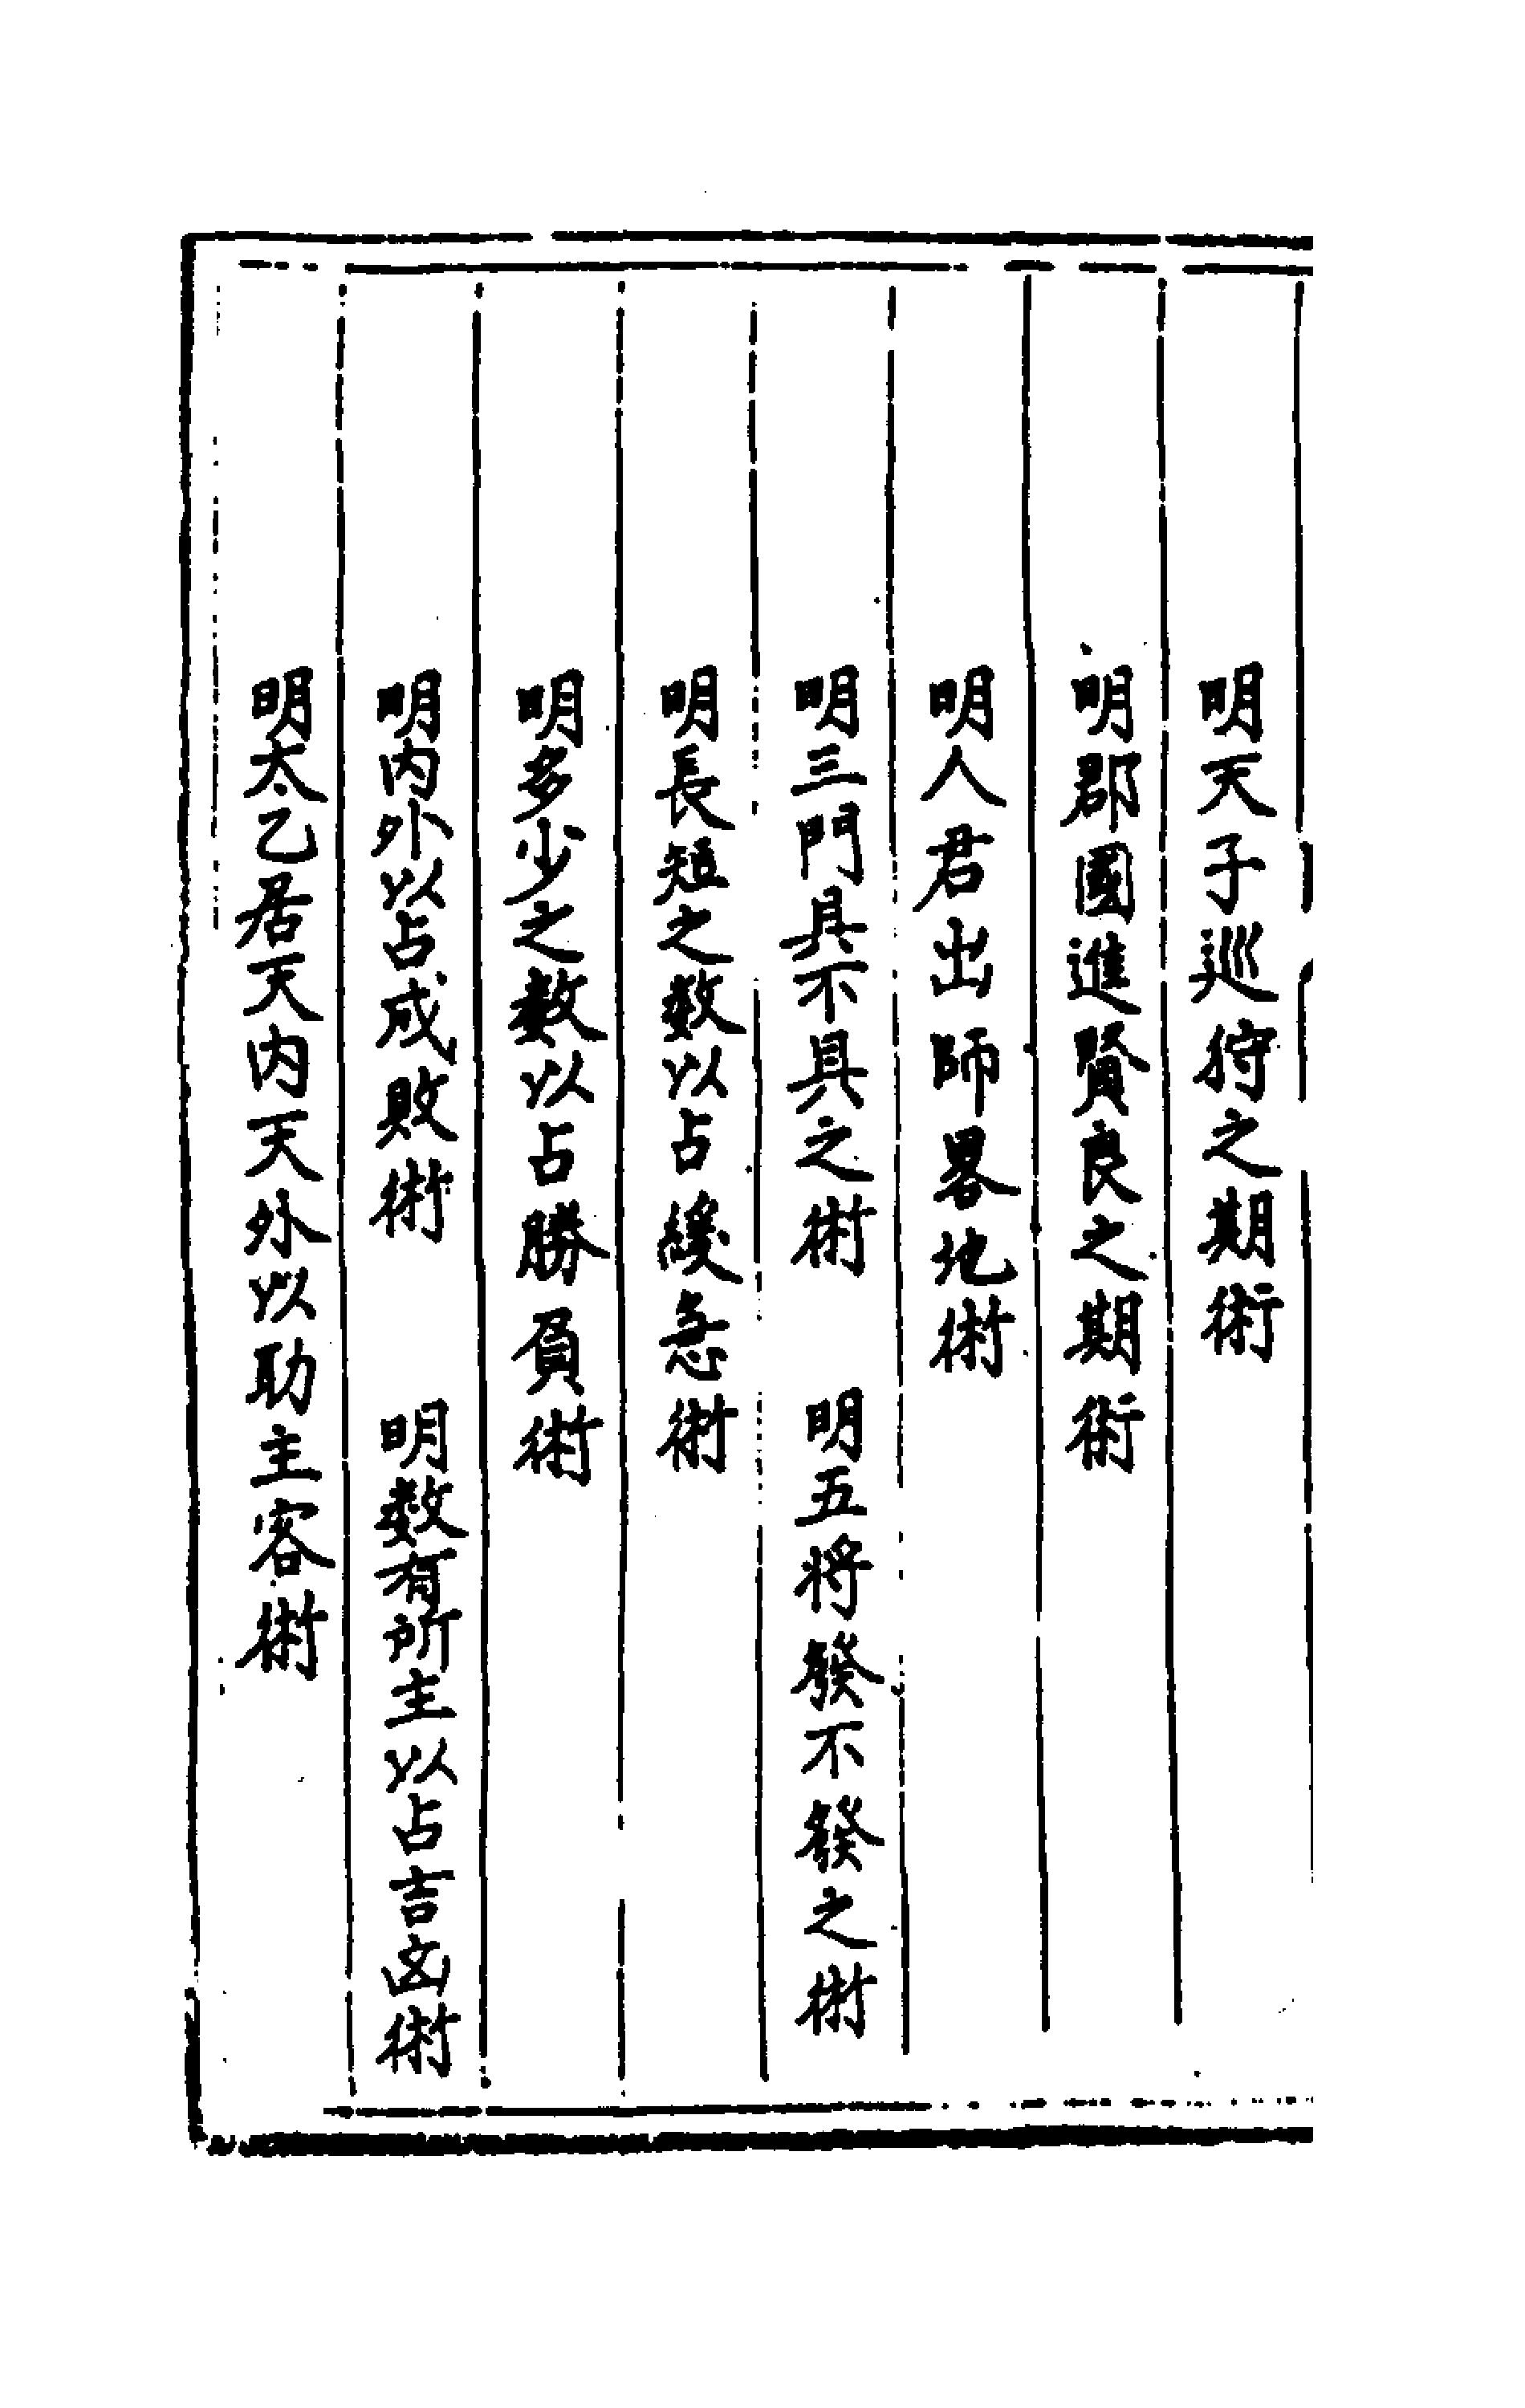 明天子巡狩之期術
明郡國進賢良之期術
明人君出師畧地術
明三門具不具之術　明五将發不發之術
明長短之數以占緩急術
明多少之數以占勝負術
明内外以占成敗術　明數有所主以占吉凶術
明太乙居天内天外以助主客術